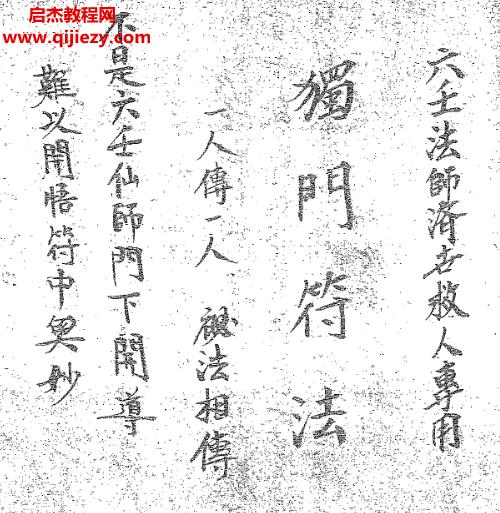 启杰教程网
www.qijiezy.com
六壬法師濟世救人專用
獨門符法
一人傳一人 秘法相傳
不是六壬仙師門下開導
難以開悟符中奧妙